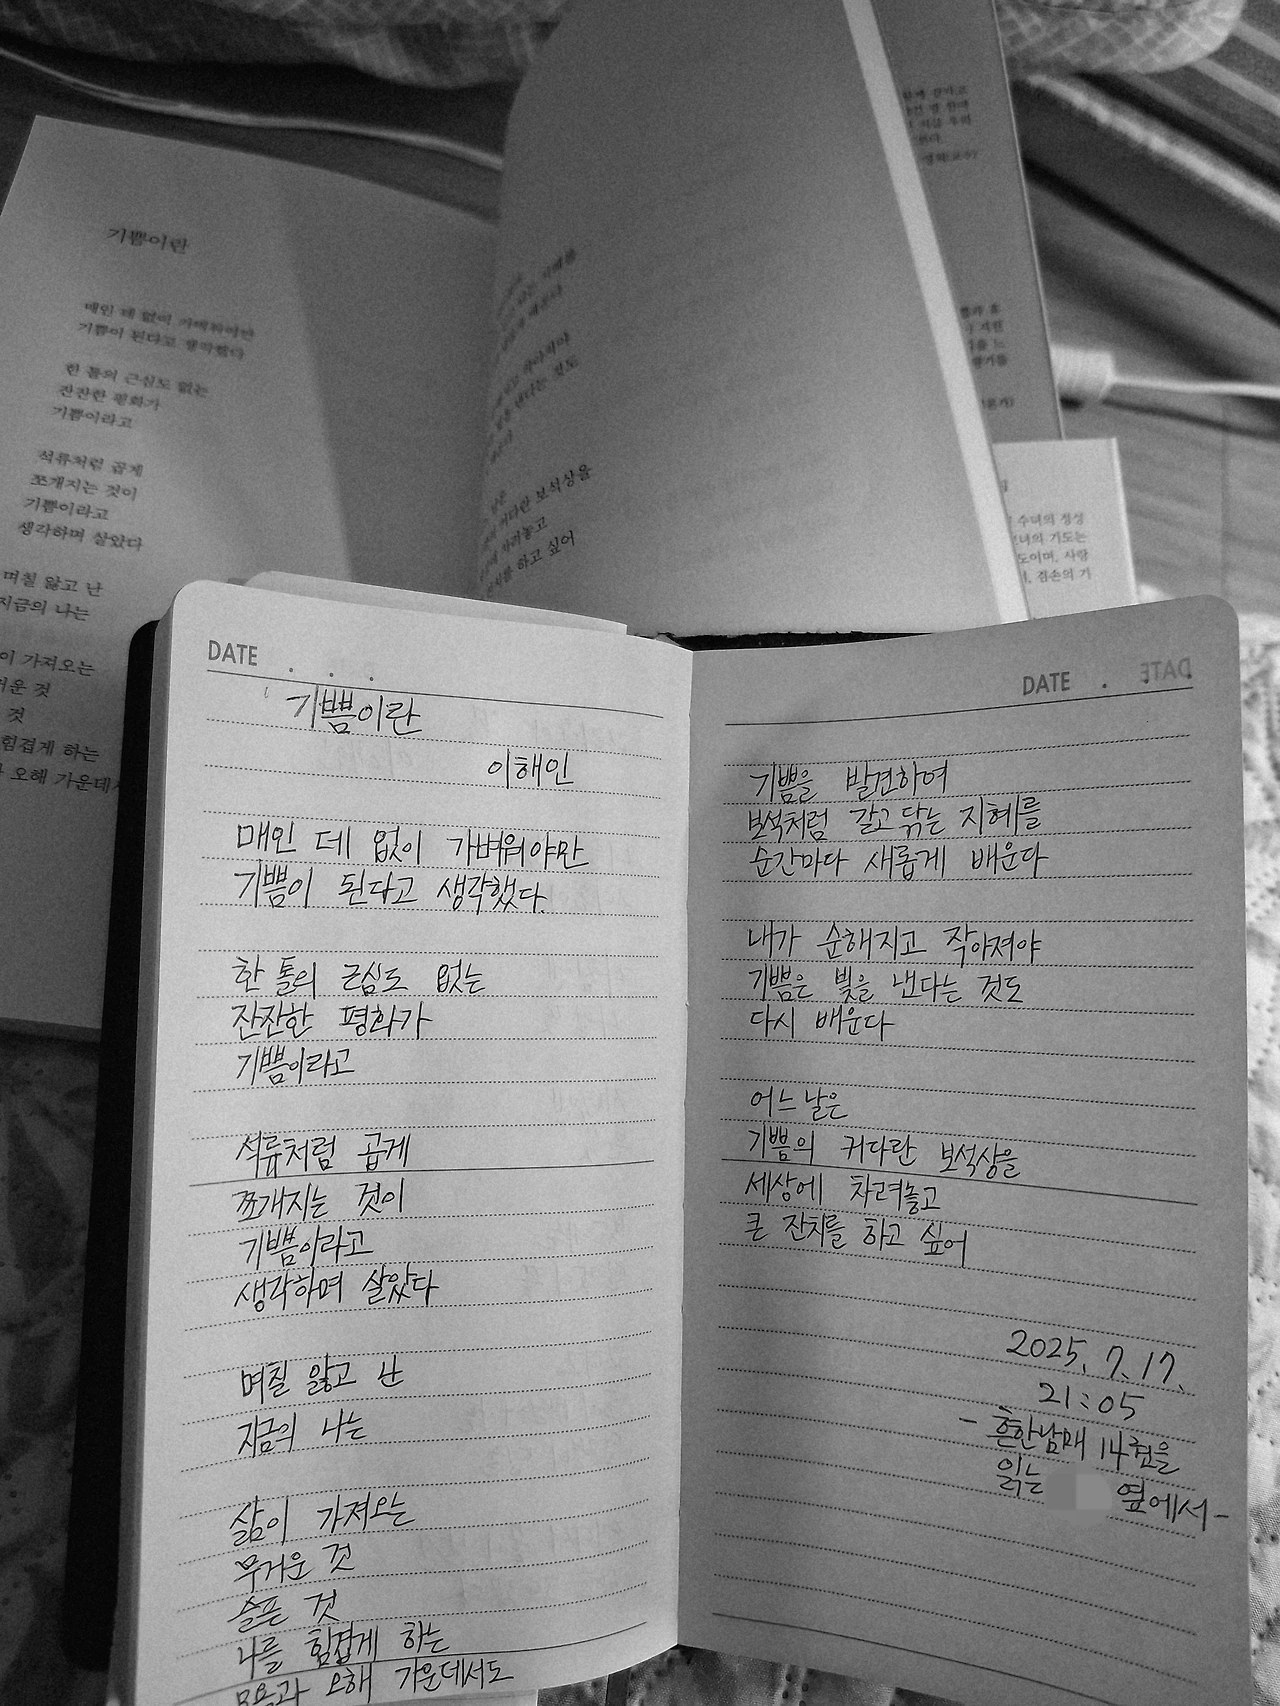 기쁨이란
매인 데 없이 가벼워야만
기쁨이 된다고 생각했다
한 톨의 근심도 없는
잔잔한 평화가
기쁨이라고
석류처럼 곱게
쪼개지는 것이
기쁨이라고
생각하며 살았다
며칠 앓고 난
지금의 나는
가져오는
것
것
힘겹게 하는
오해 가운데
보석상을
차려놓고
하고 싶어
수녀의 정성
기도는
사랑
겸손의 기
DATE . . .
기쁨이란
이해인
매인 데 없이 가벼워야만
기쁨이 된다고 생각했다.
한 톨의 근심도 없는
잔잔한 평화가
기쁨이라고
석류처럼 곱게
쪼개지는 것이
기쁨이라고
생각하며 살았다
며칠 앓고 난
지금의 나는
삶이 가져오는
무거운 것
슬픈 것
나를 힘겹게 하는
오해 가운데서도
DATE .
기쁨을 발견하여
보석처럼 갈고 닦는 지혜를
순간마다 새롭게 배운다
내가 순해지고 작아져야
기쁨은 빛을 낸다는 것도
다시 배운다
어느 날은
기쁨의 커다란 보석상을
세상에 차려놓고
큰 잔치를 하고 싶어
2025. 7. 17.
21:05
- 흔한남매 14권을
읽는 옆에서 -